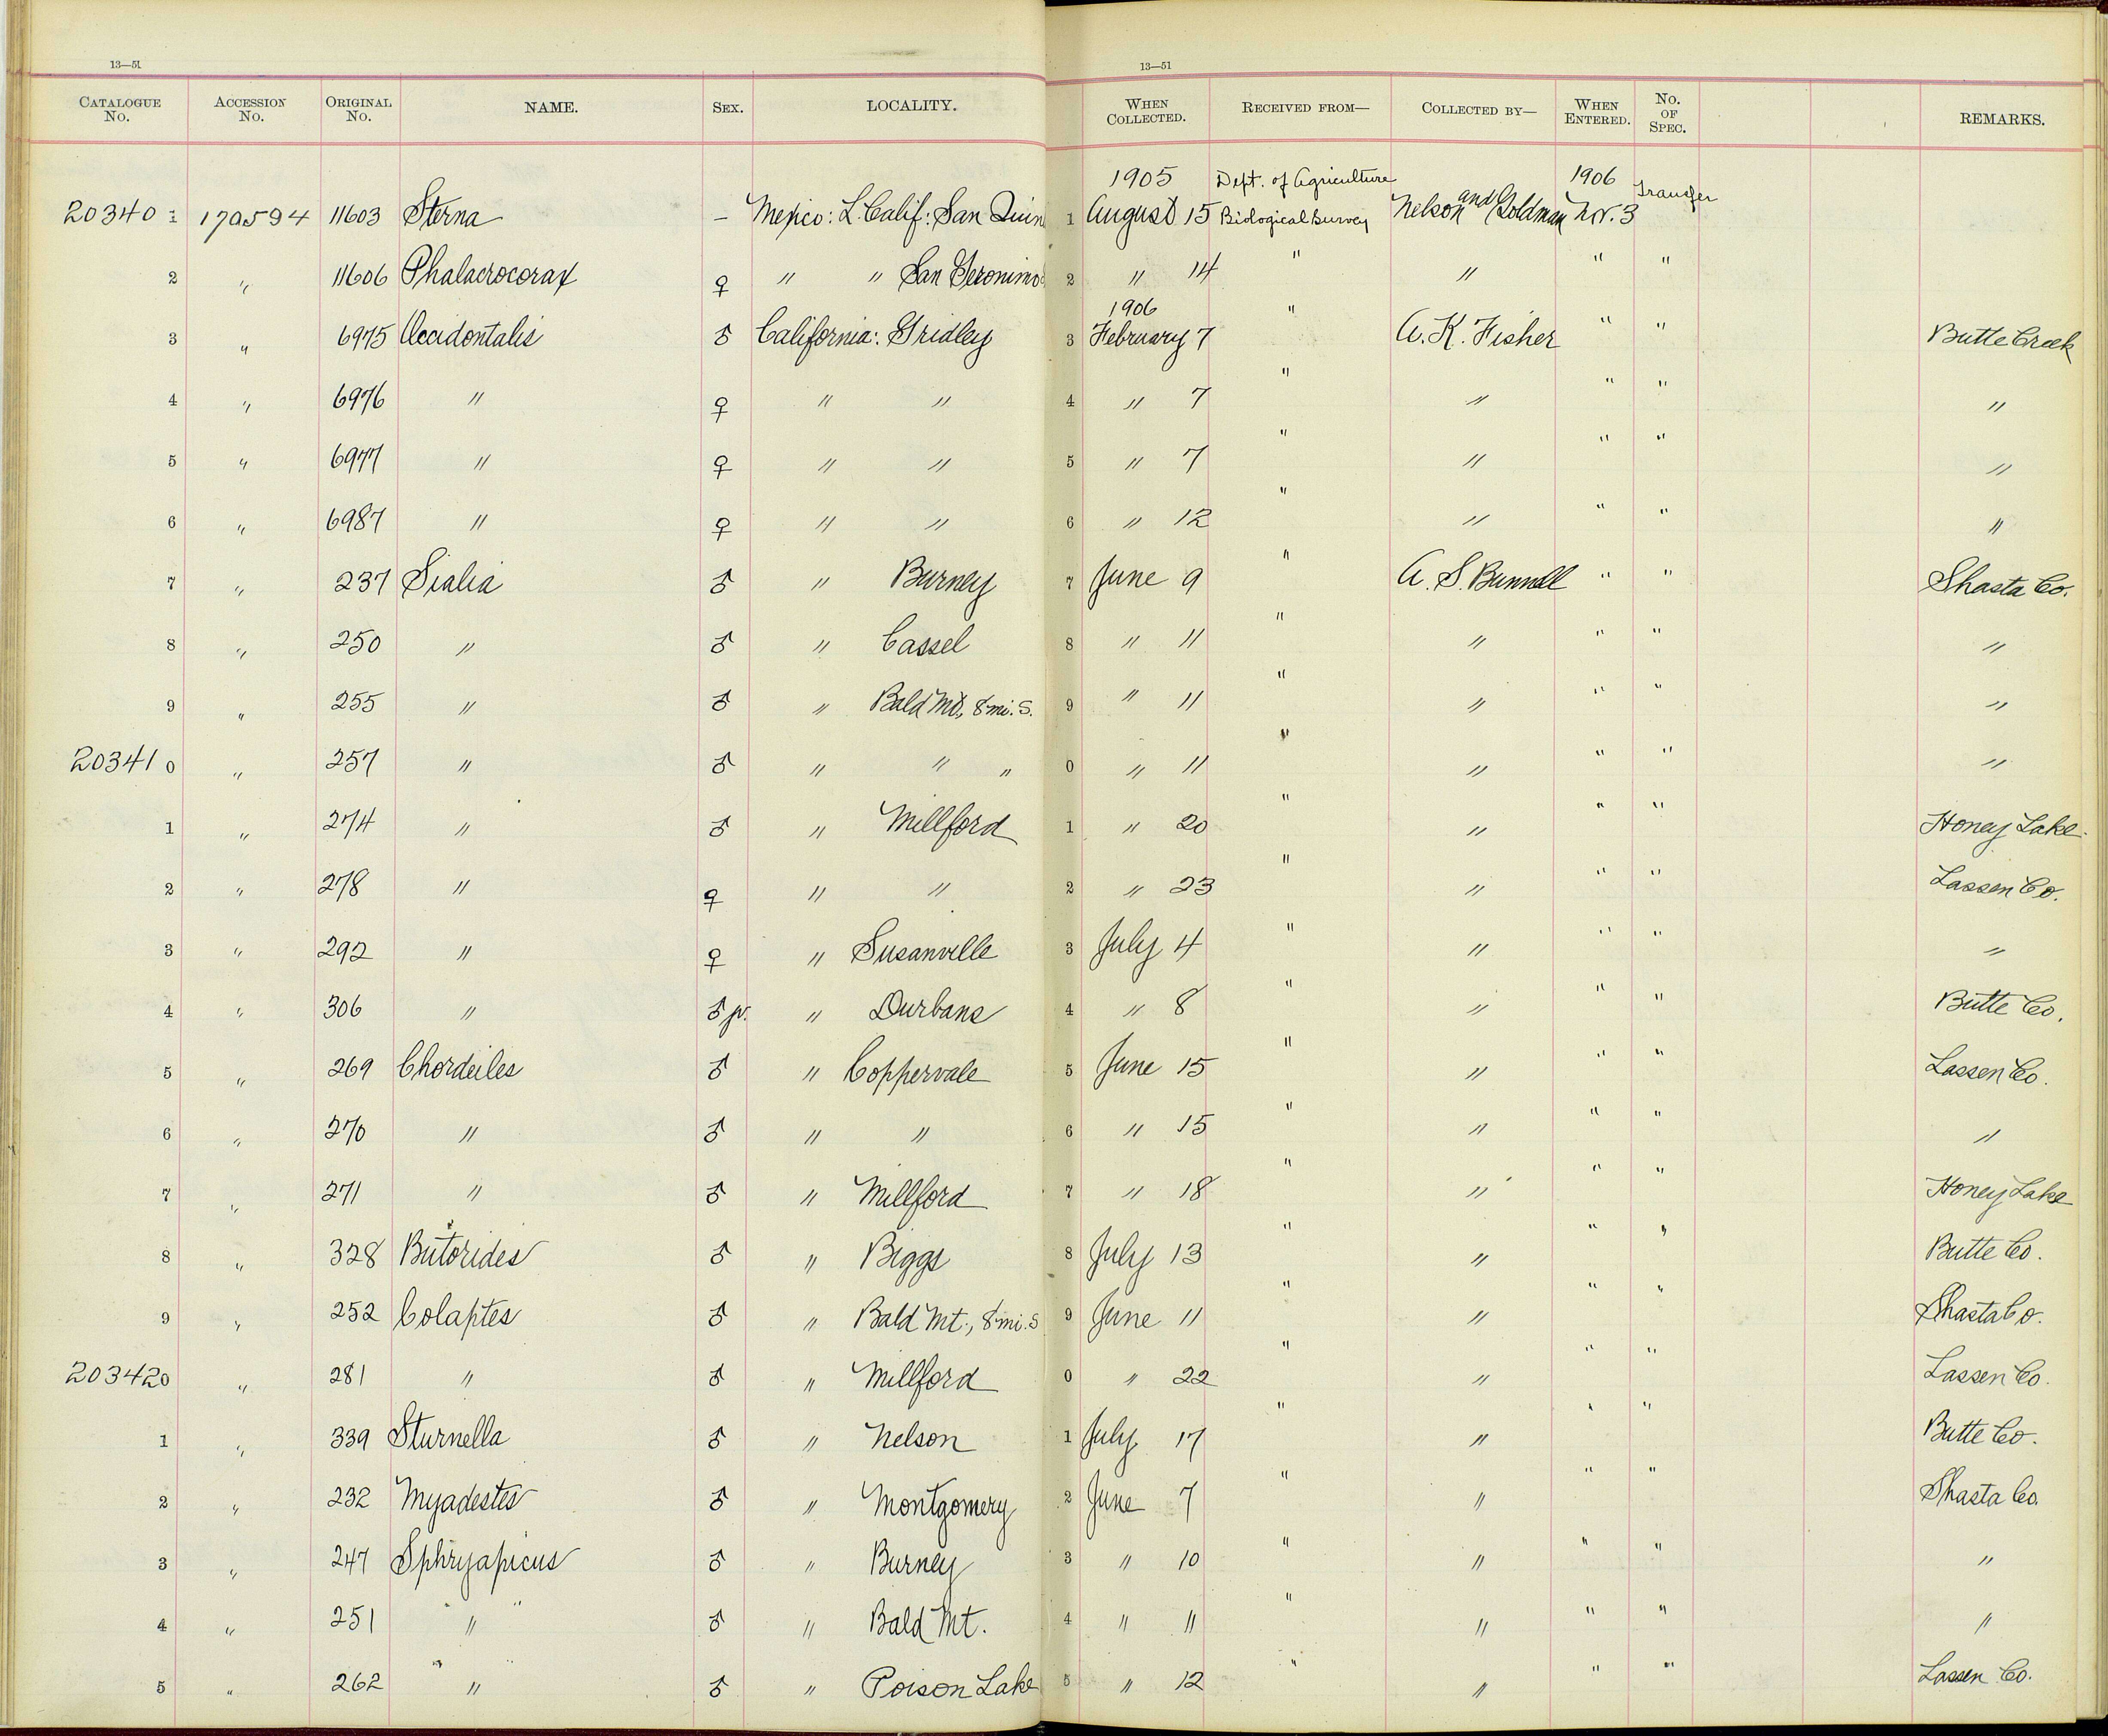 13—51 13—51
CATALOGUE No. ACCESSION No. ORIGINAL No. NAME. SEX. LOCALITY. WHEN COLLECTED. RECEIVED FROM— COLLECTED BY— WHEN ENTERED. No. OF SPEC. REMARKS.
1905 Dept. of Agriculture 1906 Transfer
20340 1 170594 11603 Sterna – Mexico: L. Calif: San Quin 1 August 15 Biological Survey Nelson and Goldman Nov. 3
2 " 11606 Phalacrocorax ♀ " " San Geronimo 2 " 14 " " " "
1906
3 " 6975 Occidentalis ♂ California: Gridley 3 February 7 " A. K. Fisher " " Butte Creek
4 " 6976 " ♀ " " 4 " 7 " " " " "
5 " 6977 " ♀ " " 5 " 7 " " " " "
6 " 6987 " ♀ " " 6 " 12 " " " " "
7 " 237 Sialia ♂ " Burney 7 June 9 " A. S. Bunnell " " Shasta Co.
8 " 250 " ♂ " Cassel 8 " 11 " " " " "
9 " 255 " ♂ " Bald Mt., 8 mi. S. 9 " 11 " " " " "
20341 0 " 257 " ♂ " " " 0 " 11 " " " " "
1 " 274 " ♂ " Millford 1 " 20 " " " " Honey Lake
2 " 278 " ♀ " " 2 " 23 " " " " Lassen Co.
3 " 292 " ♀ " Susanville 3 July 4 " " " " "
4 " 306 " ♂ " Durbans 4 " 8 " " " " Butte Co.
5 " 269 Chordeiles ♂ " Coppervale 5 June 15 " " " " Lassen Co.
6 " 270 " ♂ " " 6 " 15 " " " " "
7 " 271 " ♂ " Millford 7 " 18 " " " " Honey Lake
8 " 328 Butorides ♂ " Biggs 8 July 13 " " " " Butte Co.
9 " 252 Colaptes ♂ " Bald Mt., 8 mi. S 9 June 11 " " " " Shasta Co.
20342 0 " 281 " ♂ " Millford 0 " 22 " " " " Lassen Co.
1 " 339 Sturnella ♂ " Nelson 1 July 17 " " " " Butte Co.
2 " 232 Myadestes ♂ " Montgomery 2 June 7 " " " " Shasta Co.
3 " 247 Sphryapicus ♂ " Burney 3 " 10 " " " " "
4 " 251 " ♂ " Bald Mt. 4 " 11 " " " " "
5 " 262 " ♂ " Poison Lake 5 " 12 " " " " Lassen Co.